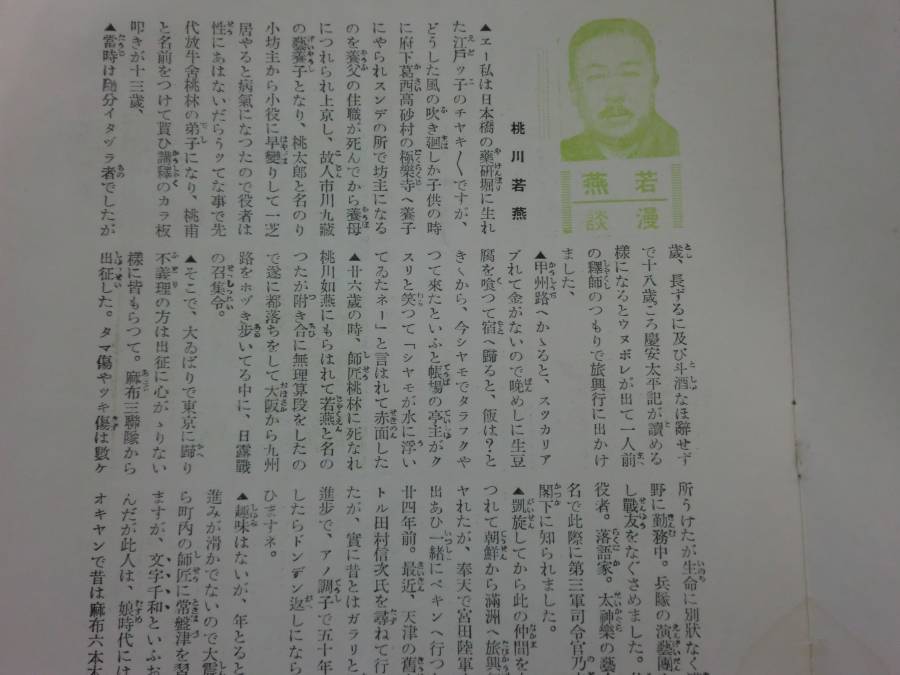 若燕漫談
桃川若燕
▲エー私は日本橋の藥硏堀に生れ
た江戸ッ子のチャキ〱ですが、
どうした風の吹き廻しか子供の時
に府下葛西高砂村の極樂寺へ養子
にやられスンデの所で坊主になる
のを養父の住職が死んでから養母
につれられ上京し、故人市川九藏
の藝養子となり、桃太郎と名のり
小坊主から小役に早變りして一芝
居やると病氣になつたので役者は
性にあはないだらうッてな事で先
代放牛舍桃林の弟子になり、桃甫
と名前をつけて貰ひ講釋のカラ板
叩きが十三歳、
▲當時は隨分イタヅラ者でしたが
歳、長ずるに及び斗酒なほ辭せず
で十八歳ごろ慶安太平記が讀める
樣になるとウヌボレが出て一人前
の釋師のつもりで旅興行に出かけ
ました、
▲甲州路へかゝると、スツカリア
ブれて金がないので晩めしに生豆
腐を喰つて宿へ歸ると、飯は？と
きくから、今シヤモでタラフクや
つて來たといふと帳場の亭主がク
スリと笑つて「シヤモが水に浮い
てゐたネー」と言はれて赤面した
▲廿六歳の時、師匠桃林に死なれ
桃川如燕にもらはれて若燕と名の
つたが附き合に無理算段をしたの
で遂に都落ちをして大阪から九州
路をホヅキ步いてる中に、日露戰
の召集令。
▲そこで、大ゐばりで東京に歸り
不義理の方は出征に心がゝりない
樣に皆もらつて。麻布三聯隊から
出征した。タマ傷やツキ傷は數ケ
所うけたが生命に別狀なく
野に勤務中。兵隊の演藝團
し戰友をなぐさめました。
役者。落語家。太神樂の藝
名で此際に第三軍司令官乃
閣下に知られました。
▲凱旋してから此の仲間を
つれて朝鮮から滿洲へ旅興
ヤれたが、奉天で宮田陸軍
出あひ一緖にペキンへ行つ
廿四年前。最近、天津の舊
トル田村信次氏を尋ねて行
たが、實に昔とはガラリと
進步で、アノ調子で五十年
したらドンデン返しになら
ひますネ。
▲趣味はないが、年とると
進みが滑かでないので大震
ら町内の師匠に常盤津を習
ますが、文字千和といふお
んだが此人は、娘時代には
オキヤンで昔は麻布六本木